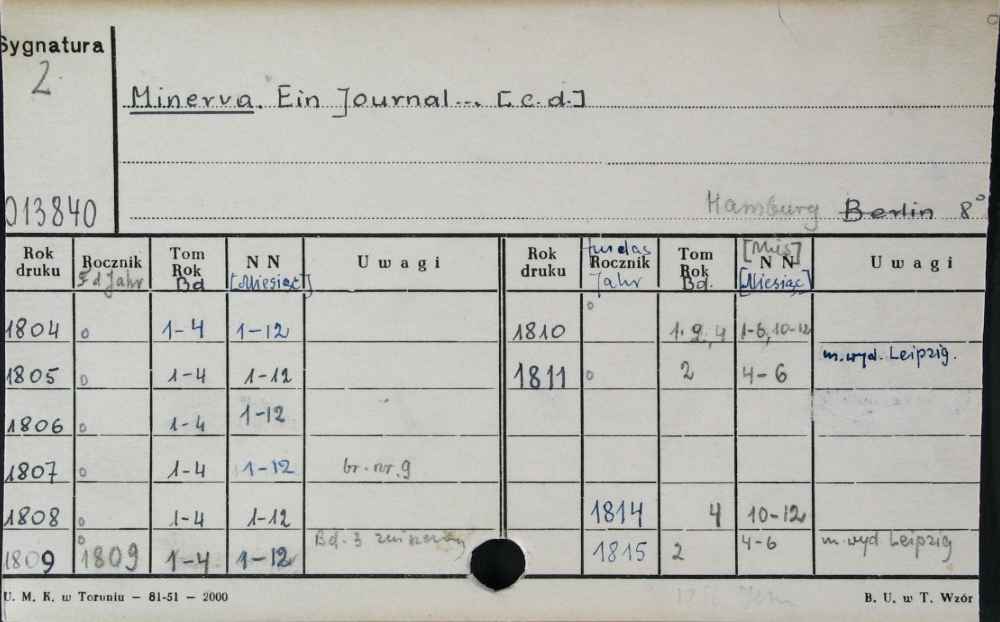 Sygnatura
2
Minerva. Ein Journal... [c.d.]
013840
Hamburg Berlin 8°
Rok druku Rocznik F d Jahr Tom Rok Bd N N [Miesiąc] Uwagi Rok druku fur das Rocznik Jahr Tom Rok Bd. [Mies] N N [Miesiąc] Uwagi
1804 o 1-4 1-12 1810 o 1. 2, 4 1-6, 10-12
1805 o 1-4 1-12 1811 o 2 4-6 m. wyd. Leipzig.
1806 o 1-4 1-12
1807 o 1-4 1-12 br. nr. 9
1808 o 1-4 1-12 1814 4 10-12
1809 o 1809 1-4 1-12 Bd. 3 1815 2 4-6 m. wyd Leipzig
U. M. K. w Toruniu — 81-51 — 2000 B. U. w T. Wzór